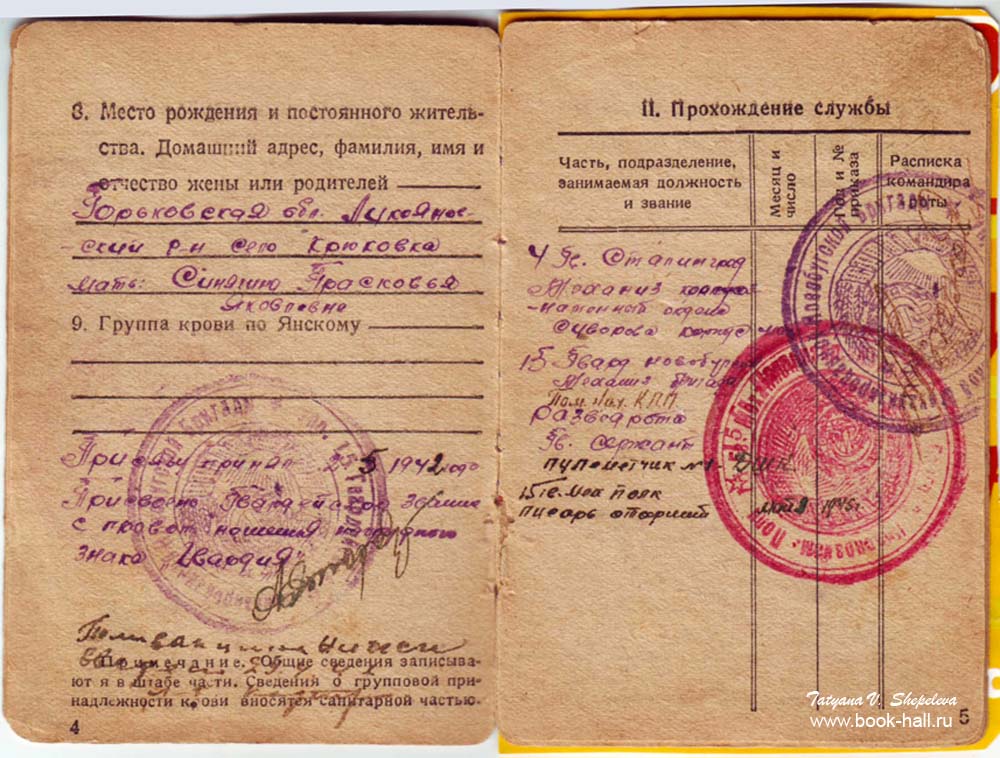 8. Место рождения и постоянного житель-
ства. Домашний адрес, фамилия, имя и
отчество жены или родителей
Горьковская обл. Лукоянов-
-ский р-н село Крюковка
мать: Синягина Прасковья
Яковлевна
9. Группа крови по Янскому
Присягу принял 2 5 1942 года
Присвоено Гвардейское звание
с правом ношения нагрудного
знака "Гвардия"
Поливакцина
Примечание. Общие сведения записыва-
ют я в штабе части. Сведения о групповой при-
надлежности крови вносятся санитарной частью.
4
II. Прохождение службы
Часть, подразделение,
занимаемая должность
и звание
Месяц и
число
Год и №
приказа
Расписка
командира
роты
4 Гв. Сталинград
Механиз
ордена
Суворова корпус
15 Гвард новобугск
Механиз бригада
Пом. Нач. КПП
Разведрота
Гв. сержант
пулеметчик №1 ДШК
15 гв. мех полк
писарь
мая 1945г
5
Tatyana V. Shepeleva
www.book-hall.ru